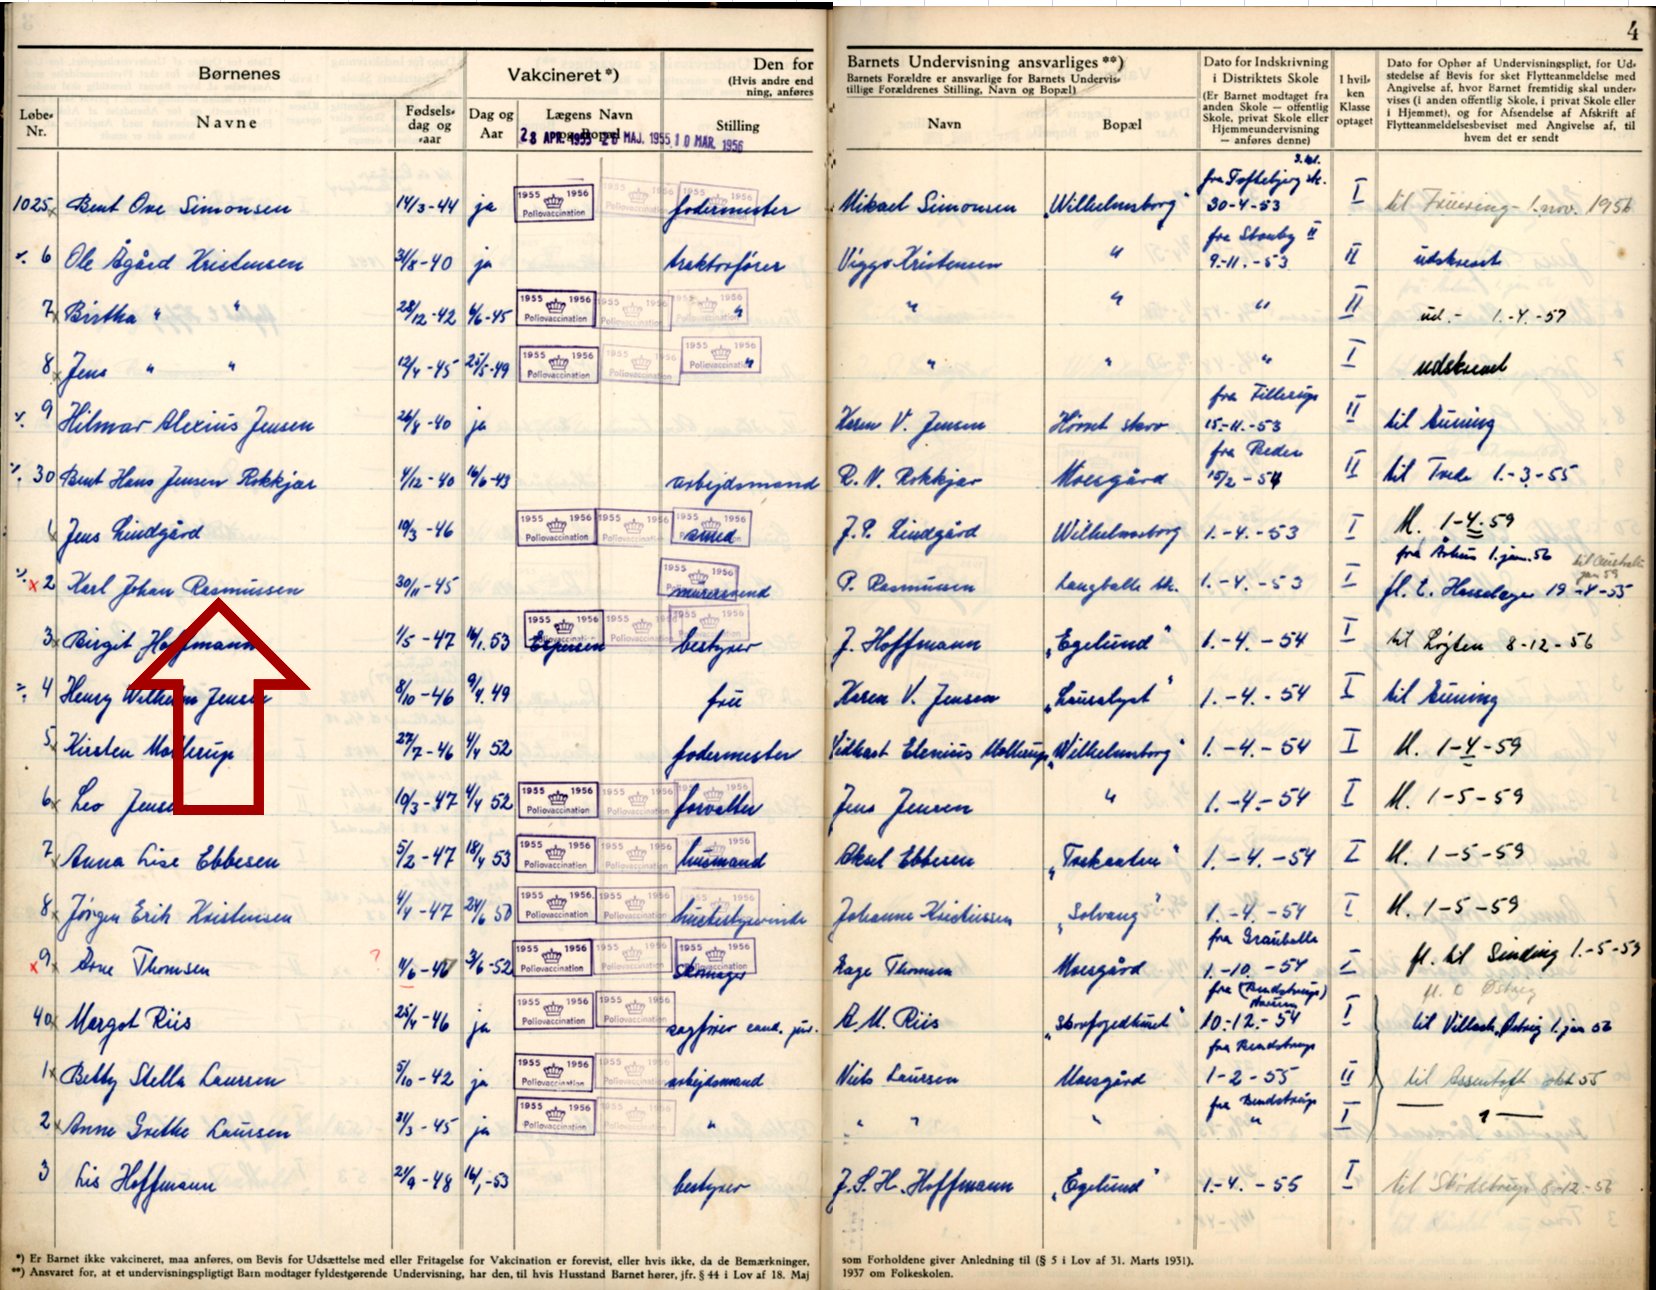 4
Børnenes Vakcineret *) Den for Barnets Undervisning ansvarliges **)
(Hvis andre end
ning, anføres
Barnets Forældre er ansvarlige for Barnets Undervis-
tillige Forældrenes Stilling, Navn og Bopæl)
Dato for Indskrivning
i Distriktets Skole
(Er Barnet modtaget fra
anden Skole — offentlig
Skole, privat Skole eller
Hjemmeundervisning
— anføres denne)
I hvil-
ken
Klasse
optaget
Dato for Ophør af Undervisningspligt, for Ud-
stedelse af Bevis for sket Flytteanmeldelse med
Angivelse af, hvor Barnet fremtidig skal under-
vises (i anden offentlig Skole, i privat Skole eller
i Hjemmet), og for Afsendelse af Afskrift af
Flytteanmeldelsesbeviset med Angivelse af, til
hvem det er sendt
Løbe-
Nr.
Navne
Fødsels-
dag og
-aar
Dag og
Aar
Lægens Navn
og Bopæl
Stilling
Navn
Bopæl
28 APR. 1955 26 MAJ. 1955 10 MAR. 1956
1025 Bent Ove Simonsen 14/3-44 ja 1955 1956 Poliovaccination fodermester Mikael Simonsen "Wilhelmsborg" 30-4-53 I 1. nov. 1956
6 Ole Ågård Kristensen 31/8-40 ja traktorfører Viggo Kristensen " 9.-11.-53 II udskrevet
7 Birtha " " 28/12-42 6/6-45 1955 1956 Poliovaccination " " " " II ud.- 1.-4.-57
8 Jens " " 12/4-45 25/5-49 1955 1956 Poliovaccination " " " " I udskrevet
9 Hilmar Alexius Jensen 26/8-40 ja Karen V. Jensen Hørret skov fra Fillerup 15.-11.-53 II til Auning
30 Bent Hans Jensen Rokkjær 4/12-40 16/6-43 arbejdsmand R. V. Rokkjær Moesgård fra Beder 15/2-54 II 1.-3.-55
1 Jens Lindgård 19/3-46 1955 1956 Poliovaccination smed J. P. Lindgård Wilhelmsborg 1.-4.-53 I M. 1-4-59
2 Karl Johan Rasmussen 30/11-45 murersvend P. Rasmussen Langballe sk. 1.-4.-53 I fra Århus 1. jan. 56 fl. t. Hasselager 19-4-55
3 Birgit Hoffmann 1/5-47 14/1.53 1955 1956 Poliovaccination Espersen bestyrer J. Hoffmann "Egelund" 1.-4.-54 I til Løgten 8-12-56
4 Henry Wilhelm Jensen 8/10-46 9/4.49 fru Karen V. Jensen "Louselyst" 1.-4.-54 I til Auning
5 Kirsten Møllerup 27/7-46 4/4 52 fodermester Møllerup "Wilhelmsborg" 1.-4.-54 I M. 1-4-59
6 Leo Jensen 19/3-47 4/4 52 1955 1956 Poliovaccination forvalter Jens Jensen " 1.-4.-54 I M. 1-5-59
7 Anna Lise Ebbesen 5/2-47 18/4 53 1955 1956 Poliovaccination husmand Aksel Ebbesen 1.-4.-54 I M. 1-5-59
8 Jørgen Erik Kristensen 4/4-47 24/6 50 1955 1956 Poliovaccination husbestyrerinde Johanne Kristensen "Solvang" 1.-4.-54 I M. 1-5-59
9 Arne Thomsen ? 3/6-52 1955 1956 Poliovaccination skomager Aage Thomsen Moesgård fra Grauballe 1.-10.-54 I fl. til Sinding 1.-5-59
40 Margot Riis 25/4-46 ja 1955 1956 Poliovaccination sagfører cand. jur. A. M. Riis "Skovfogedhuset" 10.-12.-54 I til Villach, Østrig 1. jan 56
1 Betty Stella Laursen 5/10-42 ja 1955 1956 Poliovaccination arbejdsmand Niels Laursen Moesgård fra Bendstrup 1-2-55 II til Assentoft okt 55
2 Anne Grethe Laursen 31/3-45 ja 1955 1956 Poliovaccination " " " " fra Bendstrup " I — " —
3 Lis Hoffmann 21/9-48 14/1-53 bestyrer J. S. H. Hoffmann "Egelund" 1.-4.-55 I til 8-12-56
*) Er Barnet ikke vakcineret, maa anføres, om Bevis for Udsættelse med eller Fritagelse for Vakcination er forevist, eller hvis ikke, da de Bemærkninger, som Forholdene giver Anledning til (§ 5 i Lov af 31. Marts 1931).
**) Ansvaret for, at et undervisningspligtigt Barn modtager fyldestgørende Undervisning, har den, til hvis Husstand Barnet hører, jfr. § 44 i Lov af 18. Maj 1937 om Folkeskolen.